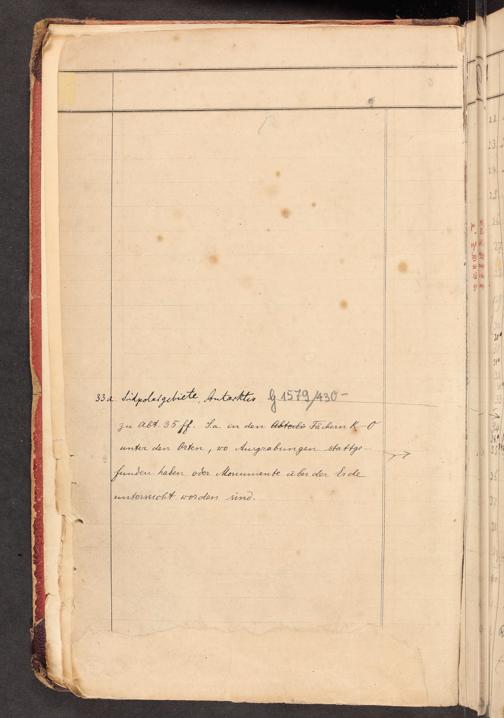 33a Südpolargebiete, Antarktis G 1579/430-
zu Abt. 35 ff. S.a. in den Abteilu Fächern K-O
unter den Orten, wo Ausgrabungen stattge-
funden haben oder Monumente über der Erde
untersucht worden sind.